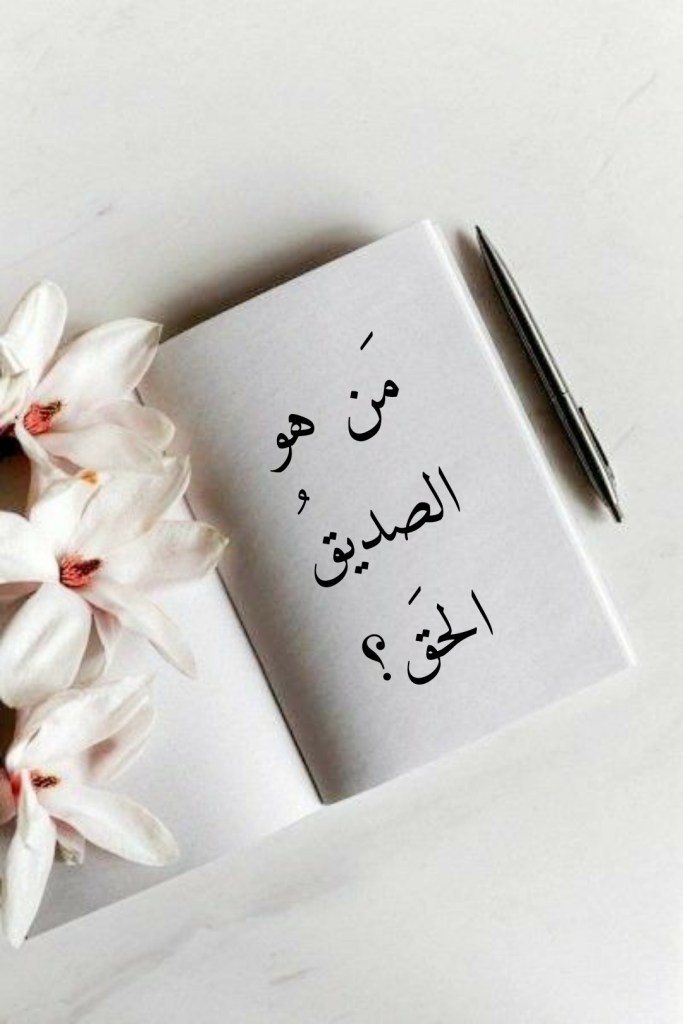 مَن هو
الصديقُ
الحقَ؟